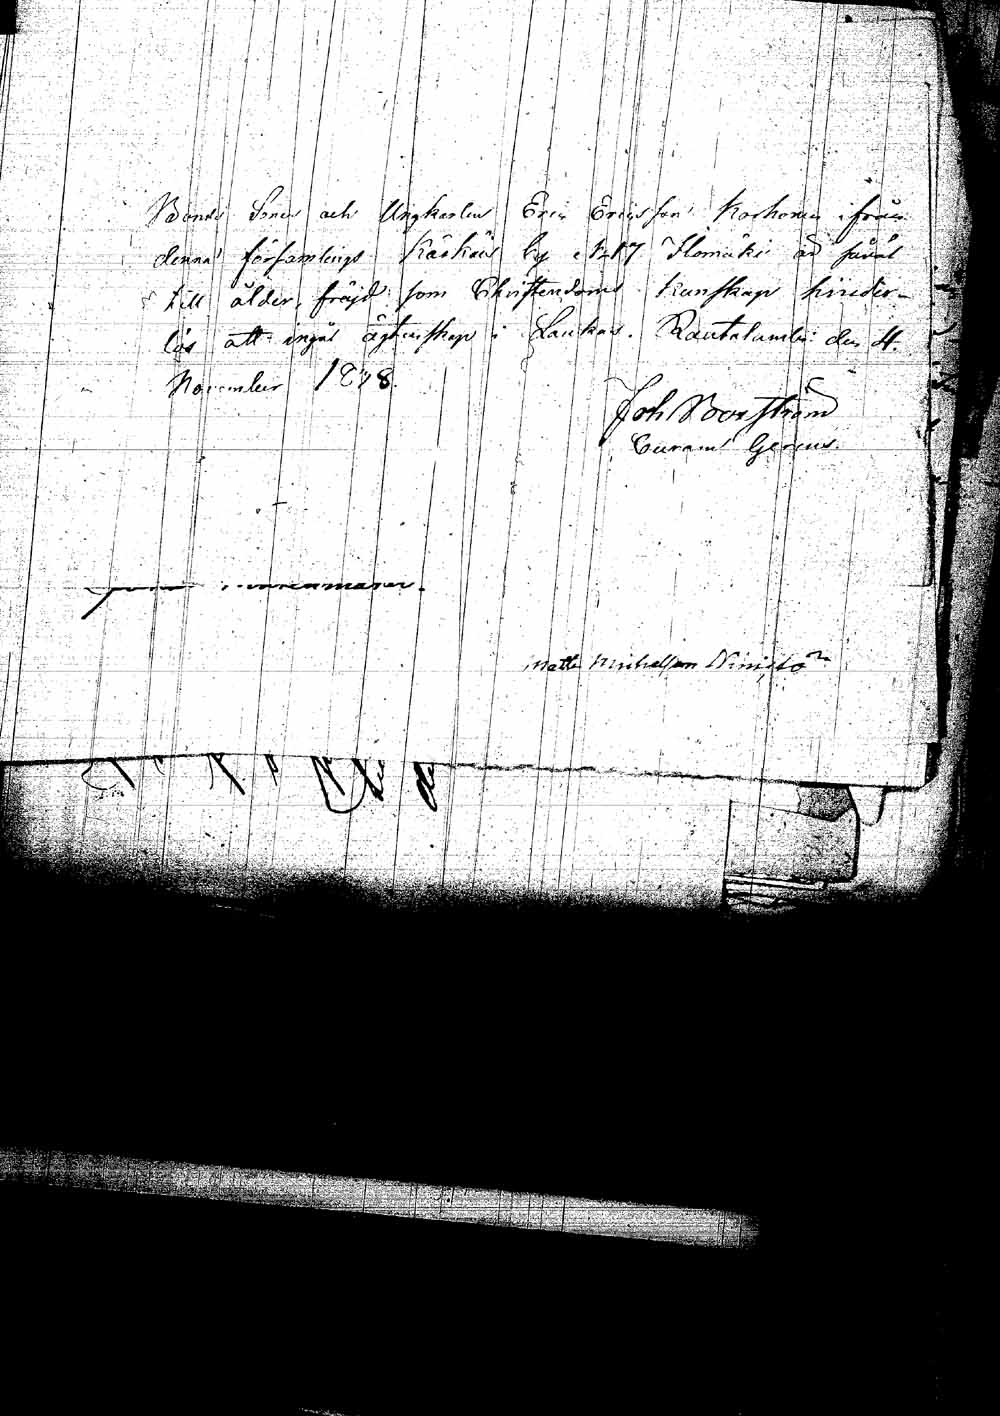 Bonde Sonen och Ungkarlen Eric Ericsson Korhonen ifrån
denna församlings Kärkäis by N:17 Ilomäki är såväl
till ålder, fräjd som Christendoms Kunskap hinder-
lös att ingå ägtenskap i Laukas. Rautalambi den 4.
November 1848.
Joh Boorström
Curam Gerens.
Matts Michelsson Niinistö